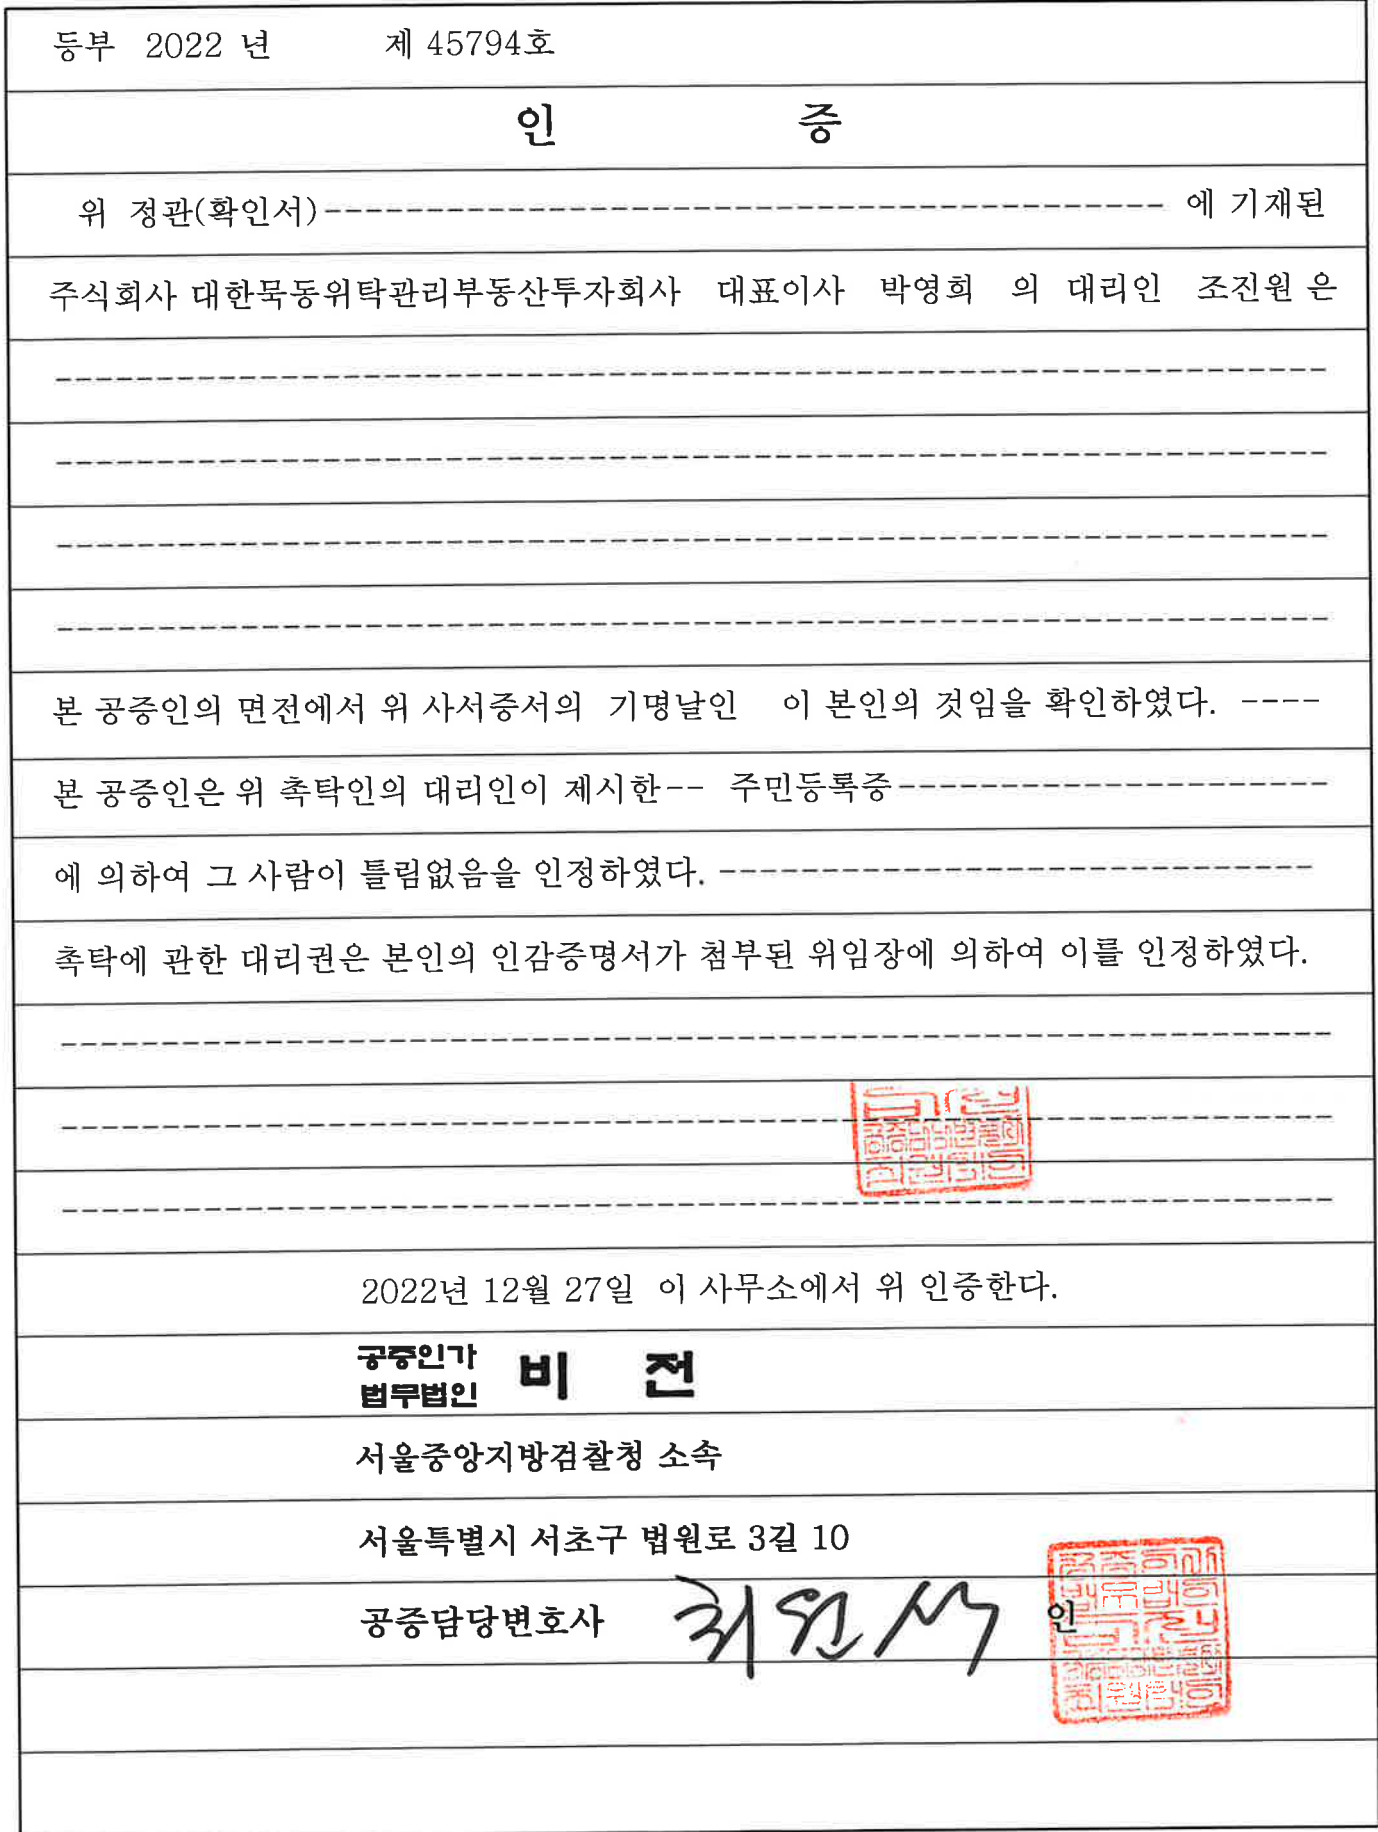 등부 2022 년 제 45794호
인 증
위 정관(확인서)---------------------------------------- 에 기재된
주식회사 대한묵동위탁관리부동산투자회사 대표이사 박영희 의 대리인 조진원 은
본 공증인의 면전에서 위 사서증서의 기명날인 이 본인의 것임을 확인하였다. ----
본 공증인은 위 촉탁인의 대리인이 제시한-- 주민등록증---------------------
에 의하여 그 사람이 틀림없음을 인정하였다. -----------------------------
촉탁에 관한 대리권은 본인의 인감증명서가 첨부된 위임장에 의하여 이를 인정하였다.
2022년 12월 27일 이 사무소에서 위 인증한다.
공증인가 법무법인 비 전
서울중앙지방검찰청 소속
서울특별시 서초구 법원로 3길 10
공증담당변호사 최원석 인